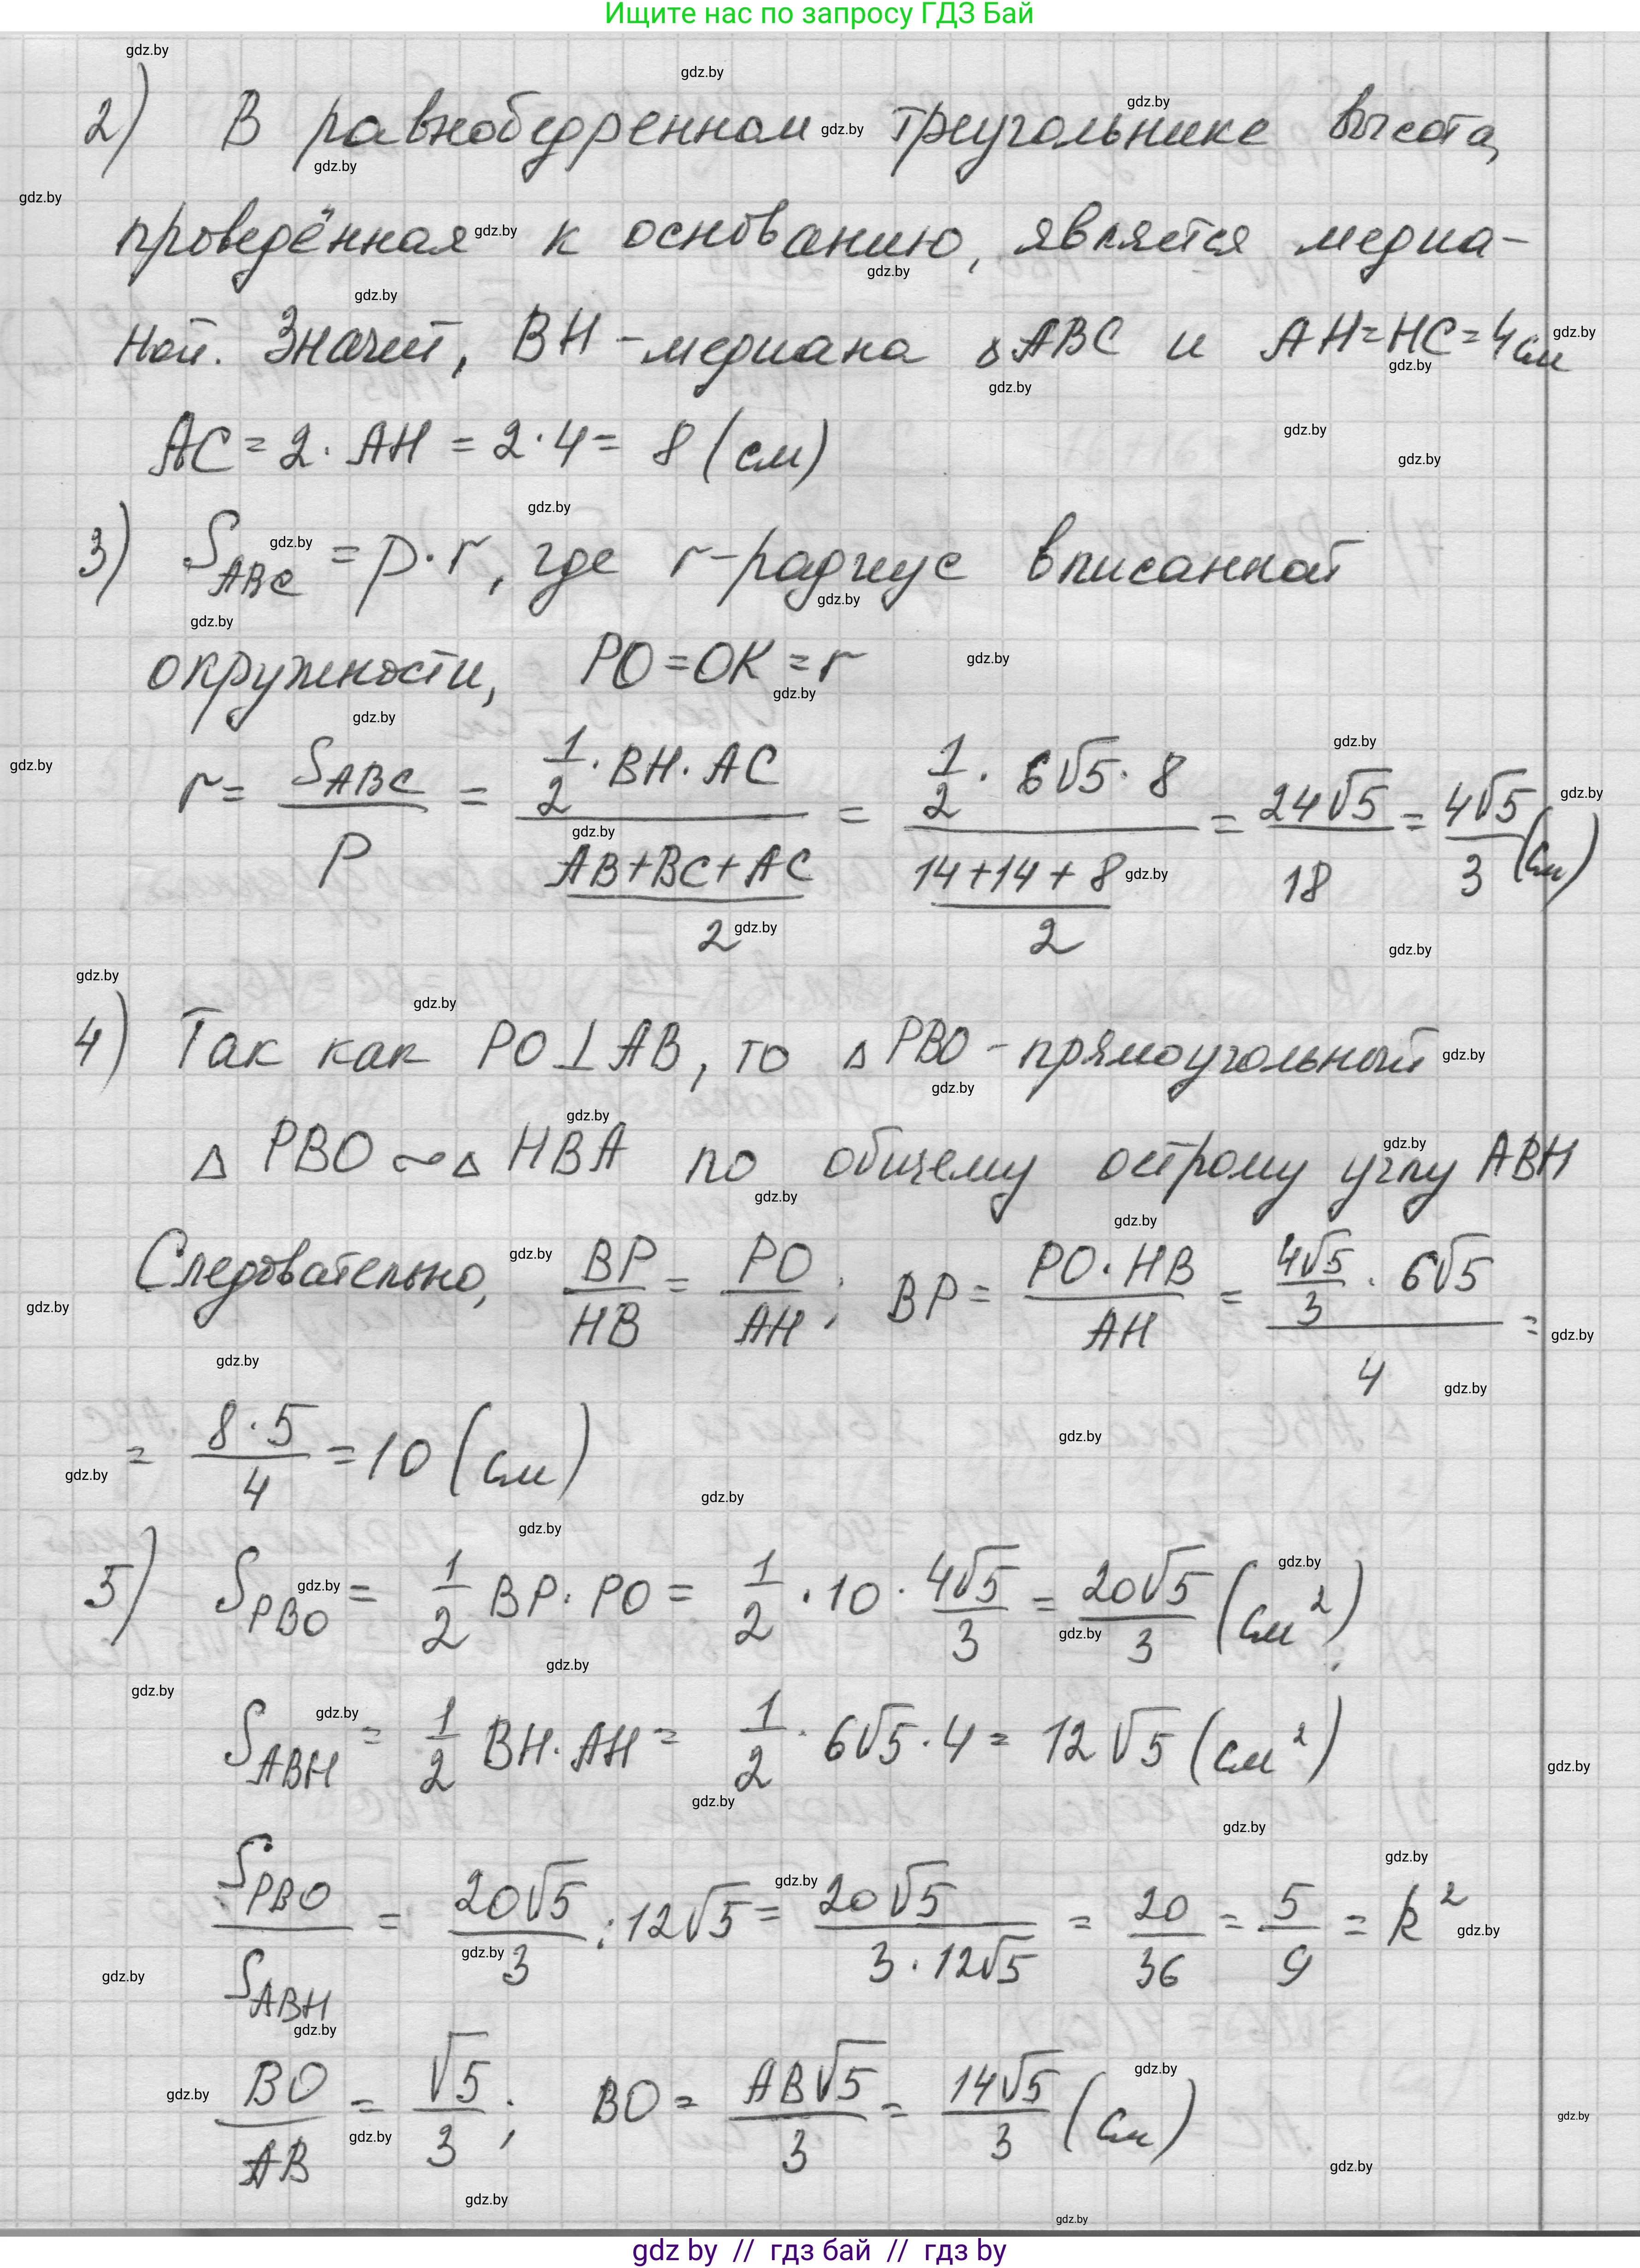 Ищите нас по запросу ГДЗ Бай
2) В равнобедренном треугольнике высота,
проведённая к основанию, является медиа-
ной. Значит, BH - медиана △ABC и AH=HC=4см
AC = 2 · AH = 2 · 4 = 8 (см)
3) S_ABC = p · r, где r - радиус вписанной
окружности, PO = OK = r
r = S_ABC / p = (1/2 · BH · AC) / ((AB+BC+AC)/2) = (1/2 · 6√5 · 8) / ((14+14+8)/2) = 24√5/18 = 4√5/3 (см)
4) Так как PO⊥AB, то △PBO - прямоугольный
△ PBO ∾ △ HBA по общему острому углу ABH
Следовательно, BP/HB = PO/AH; BP = (PO · HB)/AH = (4√5/3 · 6√5)/4 =
= (8 · 5)/4 = 10 (см)
5) S_PBO = 1/2 BP · PO = 1/2 · 10 · 4√5/3 = 20√5/3 (см²);
S_ABH = 1/2 BH · AH = 1/2 · 6√5 · 4 = 12√5 (см²)
S_PBO / S_ABH = 20√5/3 : 12√5 = 20√5/(3 · 12√5) = 20/36 = 5/9 = k²
BO/AB = √5/3; BO = AB√5/3 = 14√5/3 (см)
gdz by // гдз бай // гдз by